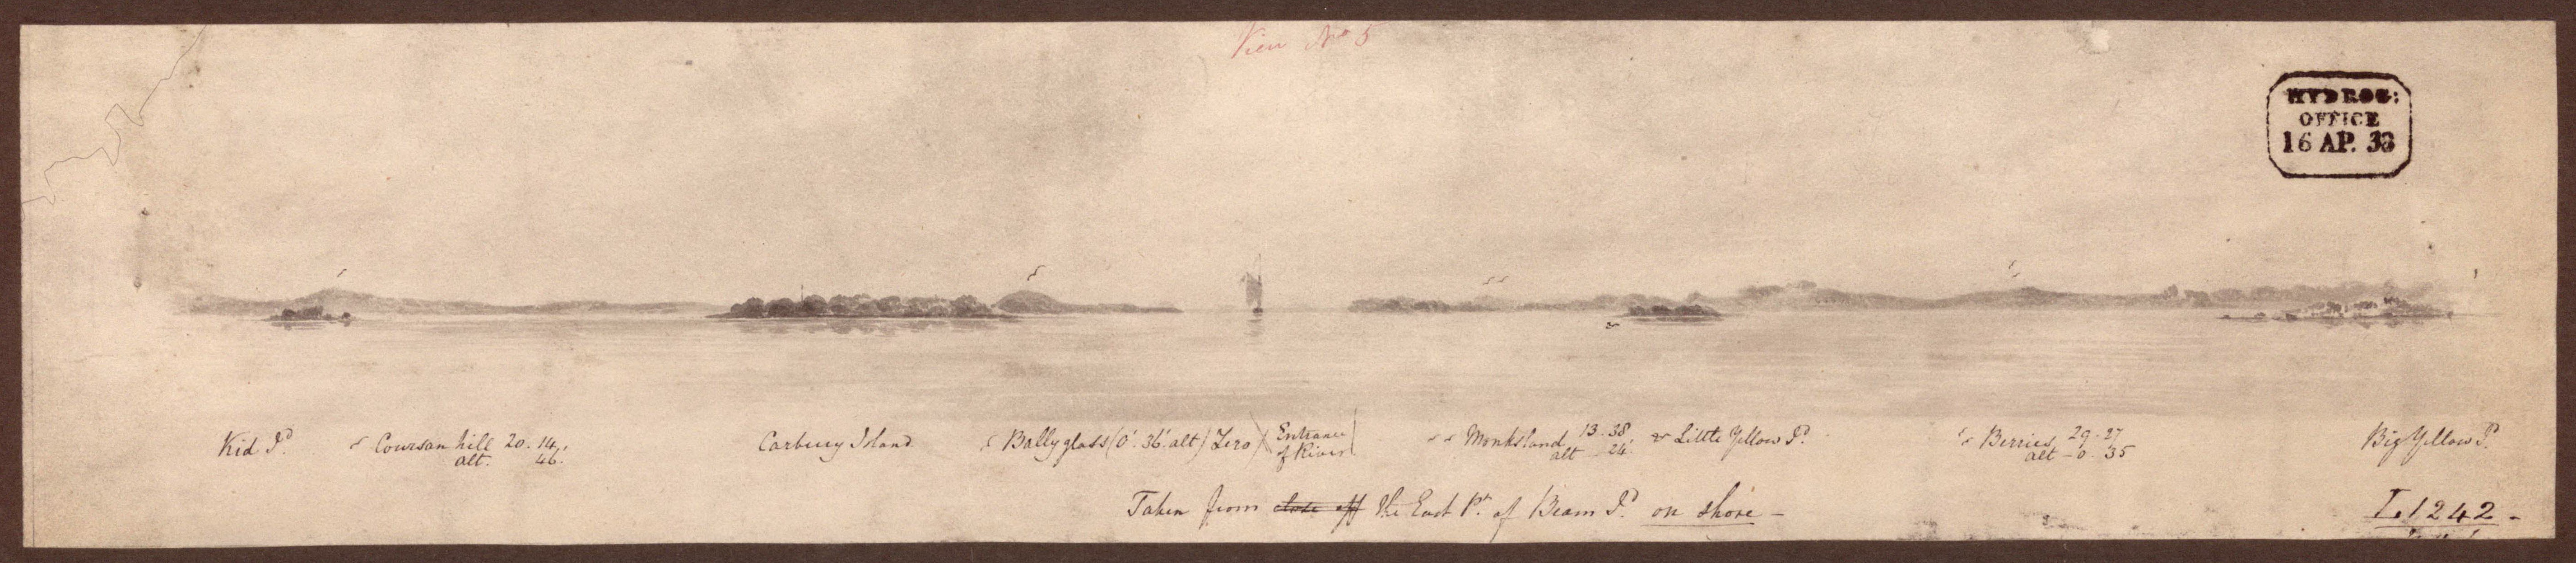 View No 5
HYDROG:
OFFICE
16 AP. 38
Kid Id
Coursan hill 20. 14.
alt. 46.
Carbury Island
Ballyglass (0°. 36'. alt) Zero
Entrance
of River
Monksland 13. 38
alt 24'
Little Yellow Id.
Berries 29. 27
alt - 0. 35
Big Yellow Id.
Taken from close off the East Pt. of Beam Id on shore -
L.1242 -